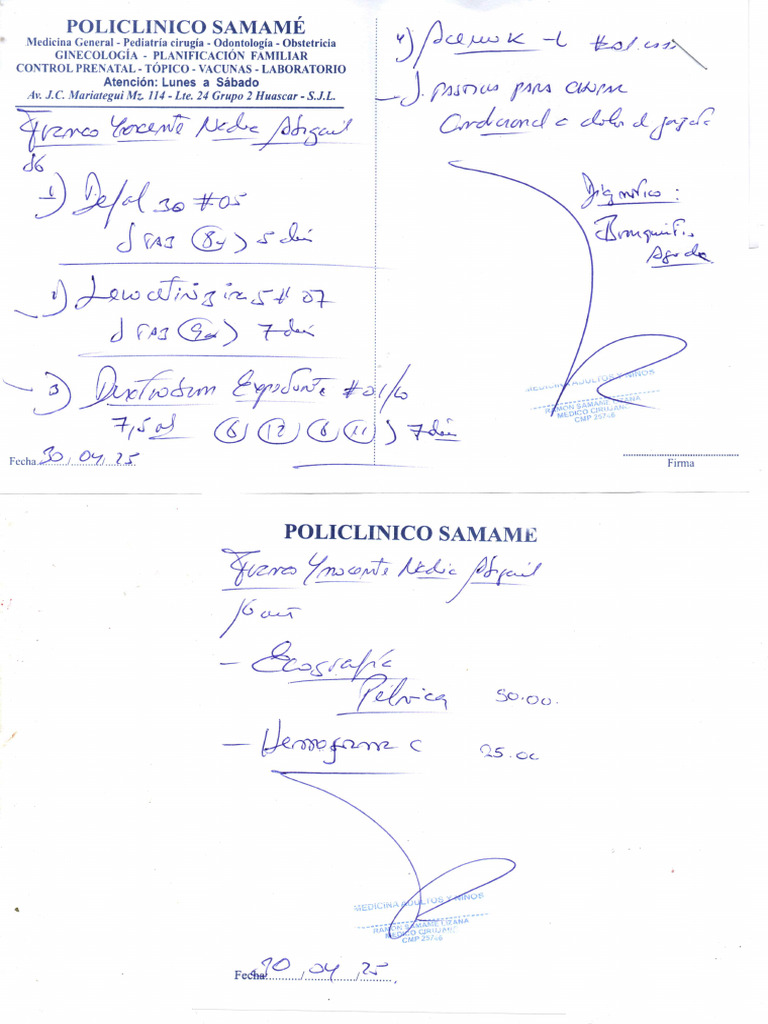 POLICLINICO SAMAMÉ
Medicina General - Pediatría cirugía - Odontología - Obstetricia
GINECOLOGÍA - PLANIFICACIÓN FAMILIAR
CONTROL PRENATAL - TÓPICO - VACUNAS - LABORATORIO
Atención: Lunes a Sábado
Av. J.C. Mariategui Mz. 114 - Lte. 24 Grupo 2 Huascar - S.J.L.
Franco Ynocente Nadia Abigail
16
1) Defal 30 #05
1 TAB (8pm) 5 días
2) Levocetirizina 5 # 07
7 días
3) Expectorante #01/
7,5 ml (6) (12) (6) (11) 7 días
Fecha 30, 04, 25
4)
1 pastillas para chupar
Condicional a dolor de garganta
Diagnóstico:
Bronquitis
Aguda
MEDICINA ADULTOS Y NIÑOS
RAMON SAMAME LIZANA
MEDICO CIRUJANO
CMP 25746
Firma
POLICLINICO SAMAME
Franco Ynocente Nadia Abigail
16 años
- Ecografía
Pélvica 50.00.
- Hemograma C 25.00
MEDICINA ADULTOS Y NIÑOS
RAMON SAMAME LIZANA
MEDICO CIRUJANO
CMP 25746
Fecha 30, 04, 25